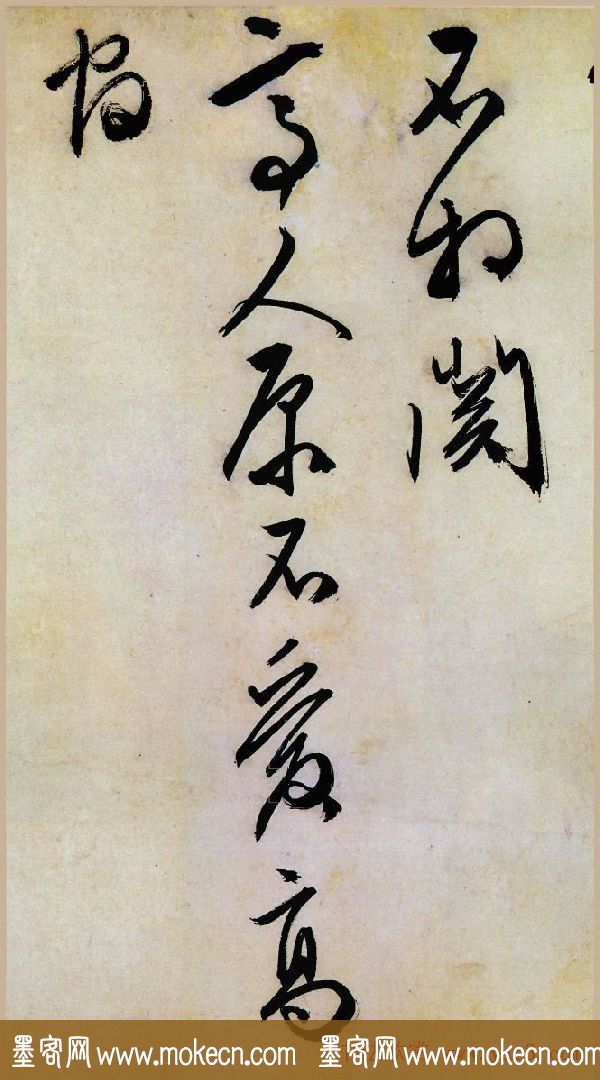 不相関
高人原不愛高
墨客网 www.mokecn.com 墨客网 www.mokecn.com